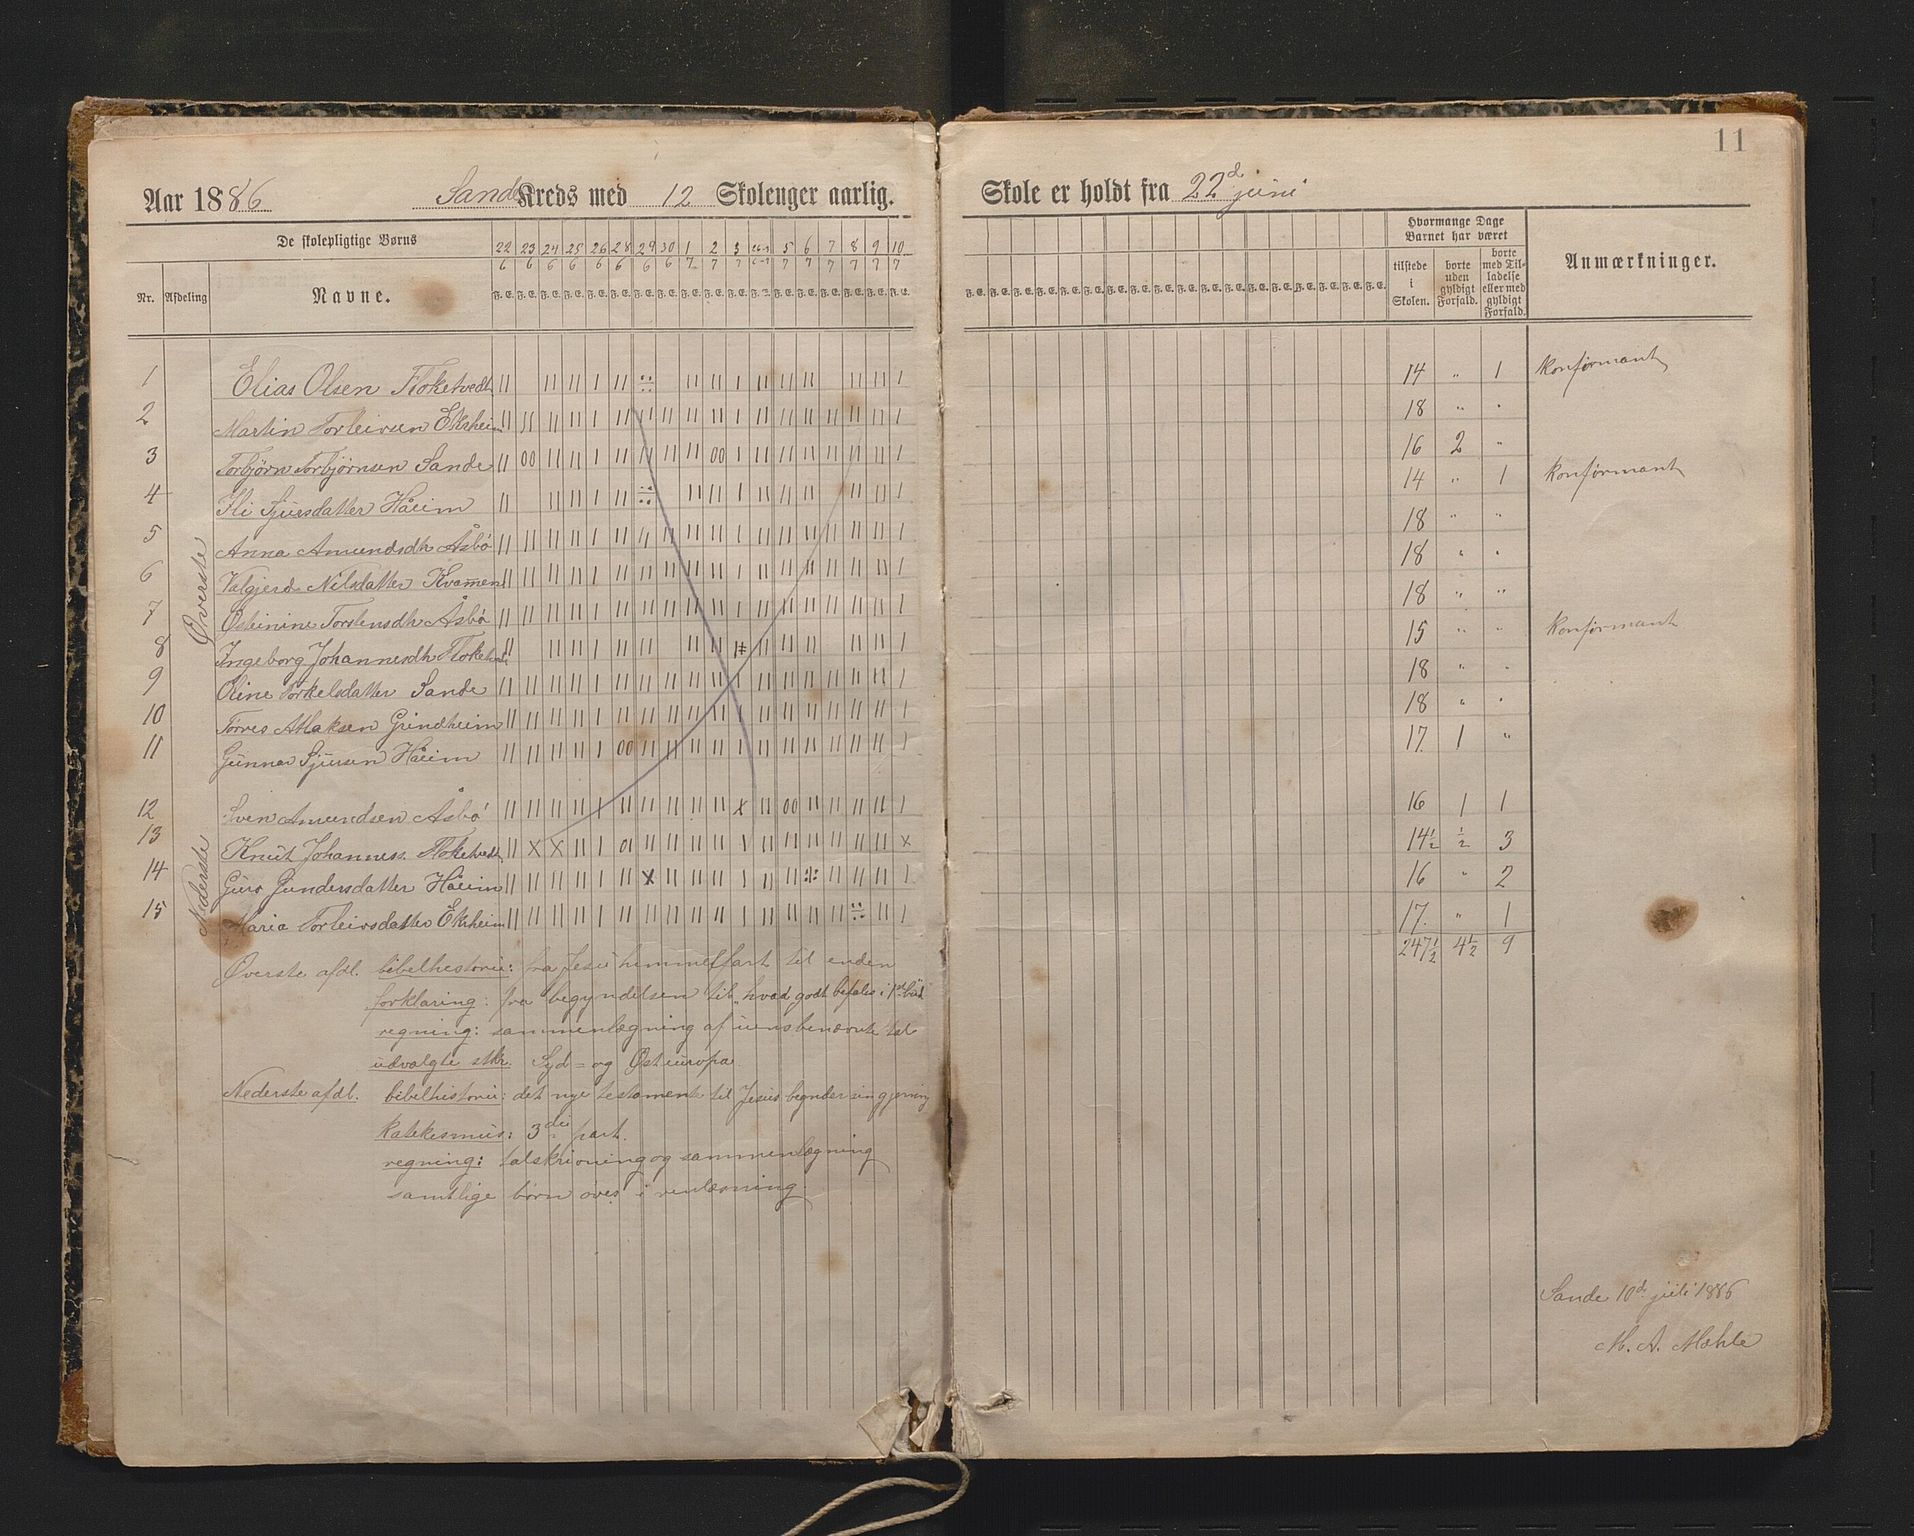 11
Aar 1886 Sande Kreds med 12 Skolenger aarlig. Skole er holdt fra 22d juni
De skolepligtige Børns
Nr. Afdeling Navne.
22 23 24 25 26 28 29 30 1 2 3 5 6 7 8 9 10
6 6 6 6 6 6 6 6 7 7 7 7 7 7 7 7 7
F. E. F. E. F. E. F. E. F. E. F. E. F. E. F. E. F. E. F. E. F. E. F. E. F. E. F. E. F. E. F. E. F. E. F. E.
Hvormange Dage Barnet har været
tilstede i Skolen.
borte uden gyldigt Forfald.
borte med Tilladelse eller med gyldigt Forfald.
Anmærkninger.
Øverste
1 Elias Olsen Floketvedt 14 " 1 konfirmant
2 Martin Torleivsen Ekrheim 18 " "
3 Torbjørn Torbjørnsen Sande 16 2 "
4 Sjursdatter Håeim 14 " 1 konfirmant
5 Anna Amundsdtr Åsbø 18 " "
6 Valgjerd Nilsdatter Kvammen 18 " "
7 Østenine Torstensdtr Åsbø 18 " "
8 Ingeborg Johannesdtr Floketvedt 15 " " konfirmant
9 Oline Torkelsdatter Sande 18 " "
10 Torres Atlaksen Grindheim 18 " "
11 Gunnar Sjursen Håeim 17 1 "
Nederste
12 Sven Amundsen Åsbø 16 1 1
13 Knut Johanness. Floketvedt 14½ ½ 3
14 Guro Gundersdatter Håeim 16 " 2
15 Maria Torleivsdatter Ekrheim 17 " 1
247½ 4½ 9
Øverste afdl. bibelhistorie: fra Jesu himmelfart til enden
forklaring: fra begyndelsen til "hvad godt befales i 1ste bud"
regning: sammenlægning af uensbenævnte tal
udvalgte stkr. Syd- og Østeuropa.
Nederste afdl. bibelhistorie: det nye testamente til Jesus begynder sin gjerning
katekismus: 3die part.
regning: talskrivning og sammenlægning
samtlige børn øves i renlæsning.
Sande 10d juli 1886
M. A. Mæhle